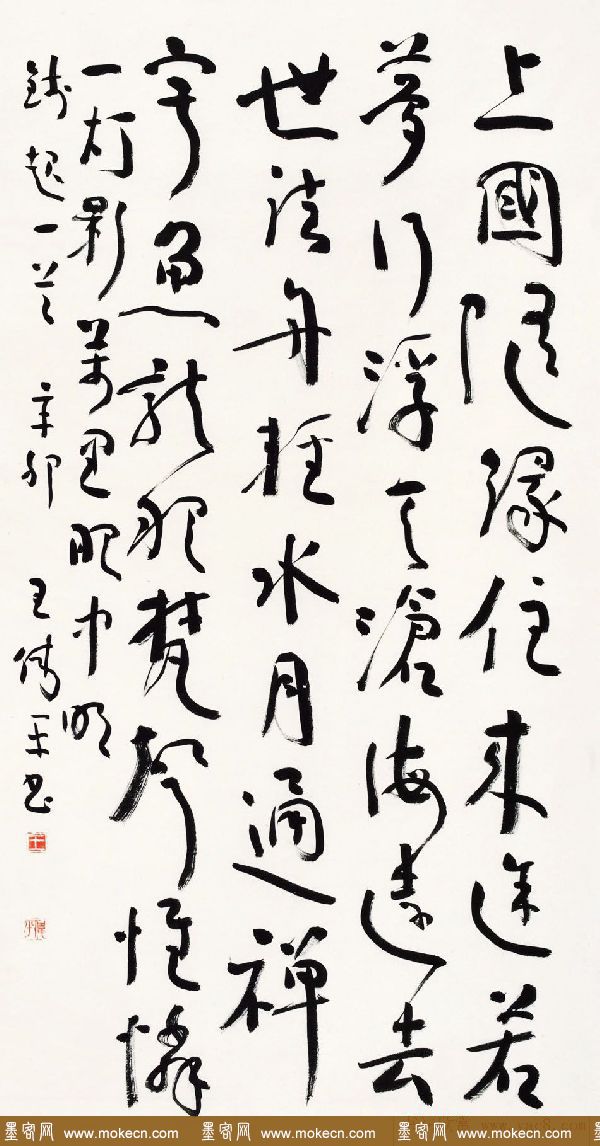 上國隨緣住來途若
夢行浮天滄海遠去
世法舟輕水月通禪
寂魚龍聽梵聲惟憐
一灯影萬里眼中明
錢起一首 辛卯 王偉平書
墨客网 www.mokecn.com 墨客网 www.mokecn.com 墨客网 www.mokecn.com